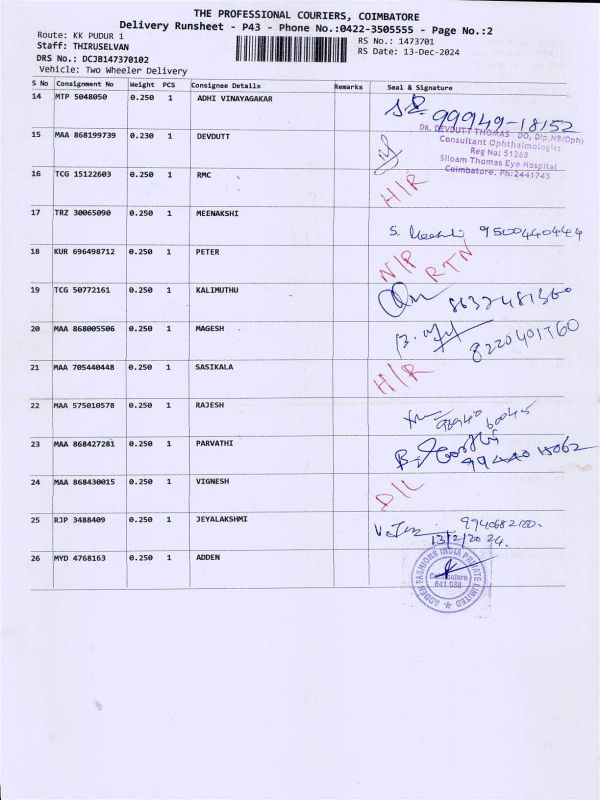 THE PROFESSIONAL COURIERS, COIMBATORE
Delivery Runsheet - P43 - Phone No.:0422-3505555 - Page No.:2
Route: KK PUDUR 1
RS No.: 1473701
Staff: THIRUSELVAN
RS Date: 13-Dec-2024
DRS No.: DCJB147370102
Vehicle: Two Wheeler Delivery
S No Consignment No Weight PCS Consignee Details Remarks Seal & Signature
14 MTP 5048050 0.250 1 ADHI VINAYAGAKAR 99949-18152
15 MAA 868199739 0.230 1 DEVDUTT
DR. DEVDUTT THOMAS DO, Dip.NB(Oph)
Consultant Ophthalmologist
Reg No: 51268
Siloam Thomas Eye Hospital
Coimbatore. Ph:2441745
16 TCG 15122603 0.250 1 RMC H/R
17 TRZ 30065090 0.250 1 MEENAKSHI S. 9500440444
18 KUR 696498712 0.250 1 PETER N/P RTN
19 TCG 50772161 0.250 1 KALIMUTHU
20 MAA 868005506 0.250 1 MAGESH 8220401760
21 MAA 705440448 0.250 1 SASIKALA H/R
22 MAA 575010578 0.250 1 RAJESH
23 MAA 868427281 0.250 1 PARVATHI
24 MAA 868430015 0.250 1 VIGNESH D/L
25 RJP 3488409 0.250 1 JEYALAKSHMI
13/12/2024.
26 MYD 4768163 0.250 1 ADDEN
ADDEN FASHIONS INDIA PRIVATE LIMITED
Coimbatore
641 038